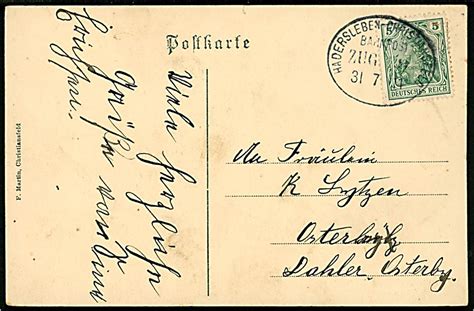 Postkarte
HADERSLEBEN-CHRISTIANSFELD
BAHNPOST
ZUG
31 7
5 5
DEUTSCHES REICH
Viele herzliche
Grüße von
F. Martin, Christiansfeld
An Fräulein
K Lytzen
Osterbylz
Dahler Osterby.